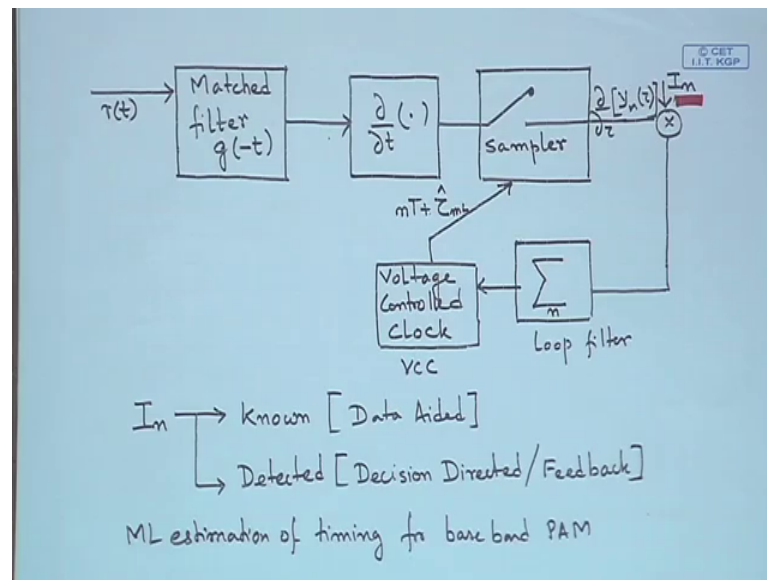 © CET
I.I.T. KGP
r(t)
Matched
filter
g(-t)
∂/∂t (·)
Sampler
∂/∂τ [yₙ(τ)]
Iₙ
×
nT + τ̂ₘₗ
Voltage
Controlled
Clock
VCC
Σ
n
Loop filter
Iₙ → Known [Data Aided]
→ Detected [Decision Directed/Feedback]
ML estimation of timing for baseband PAM